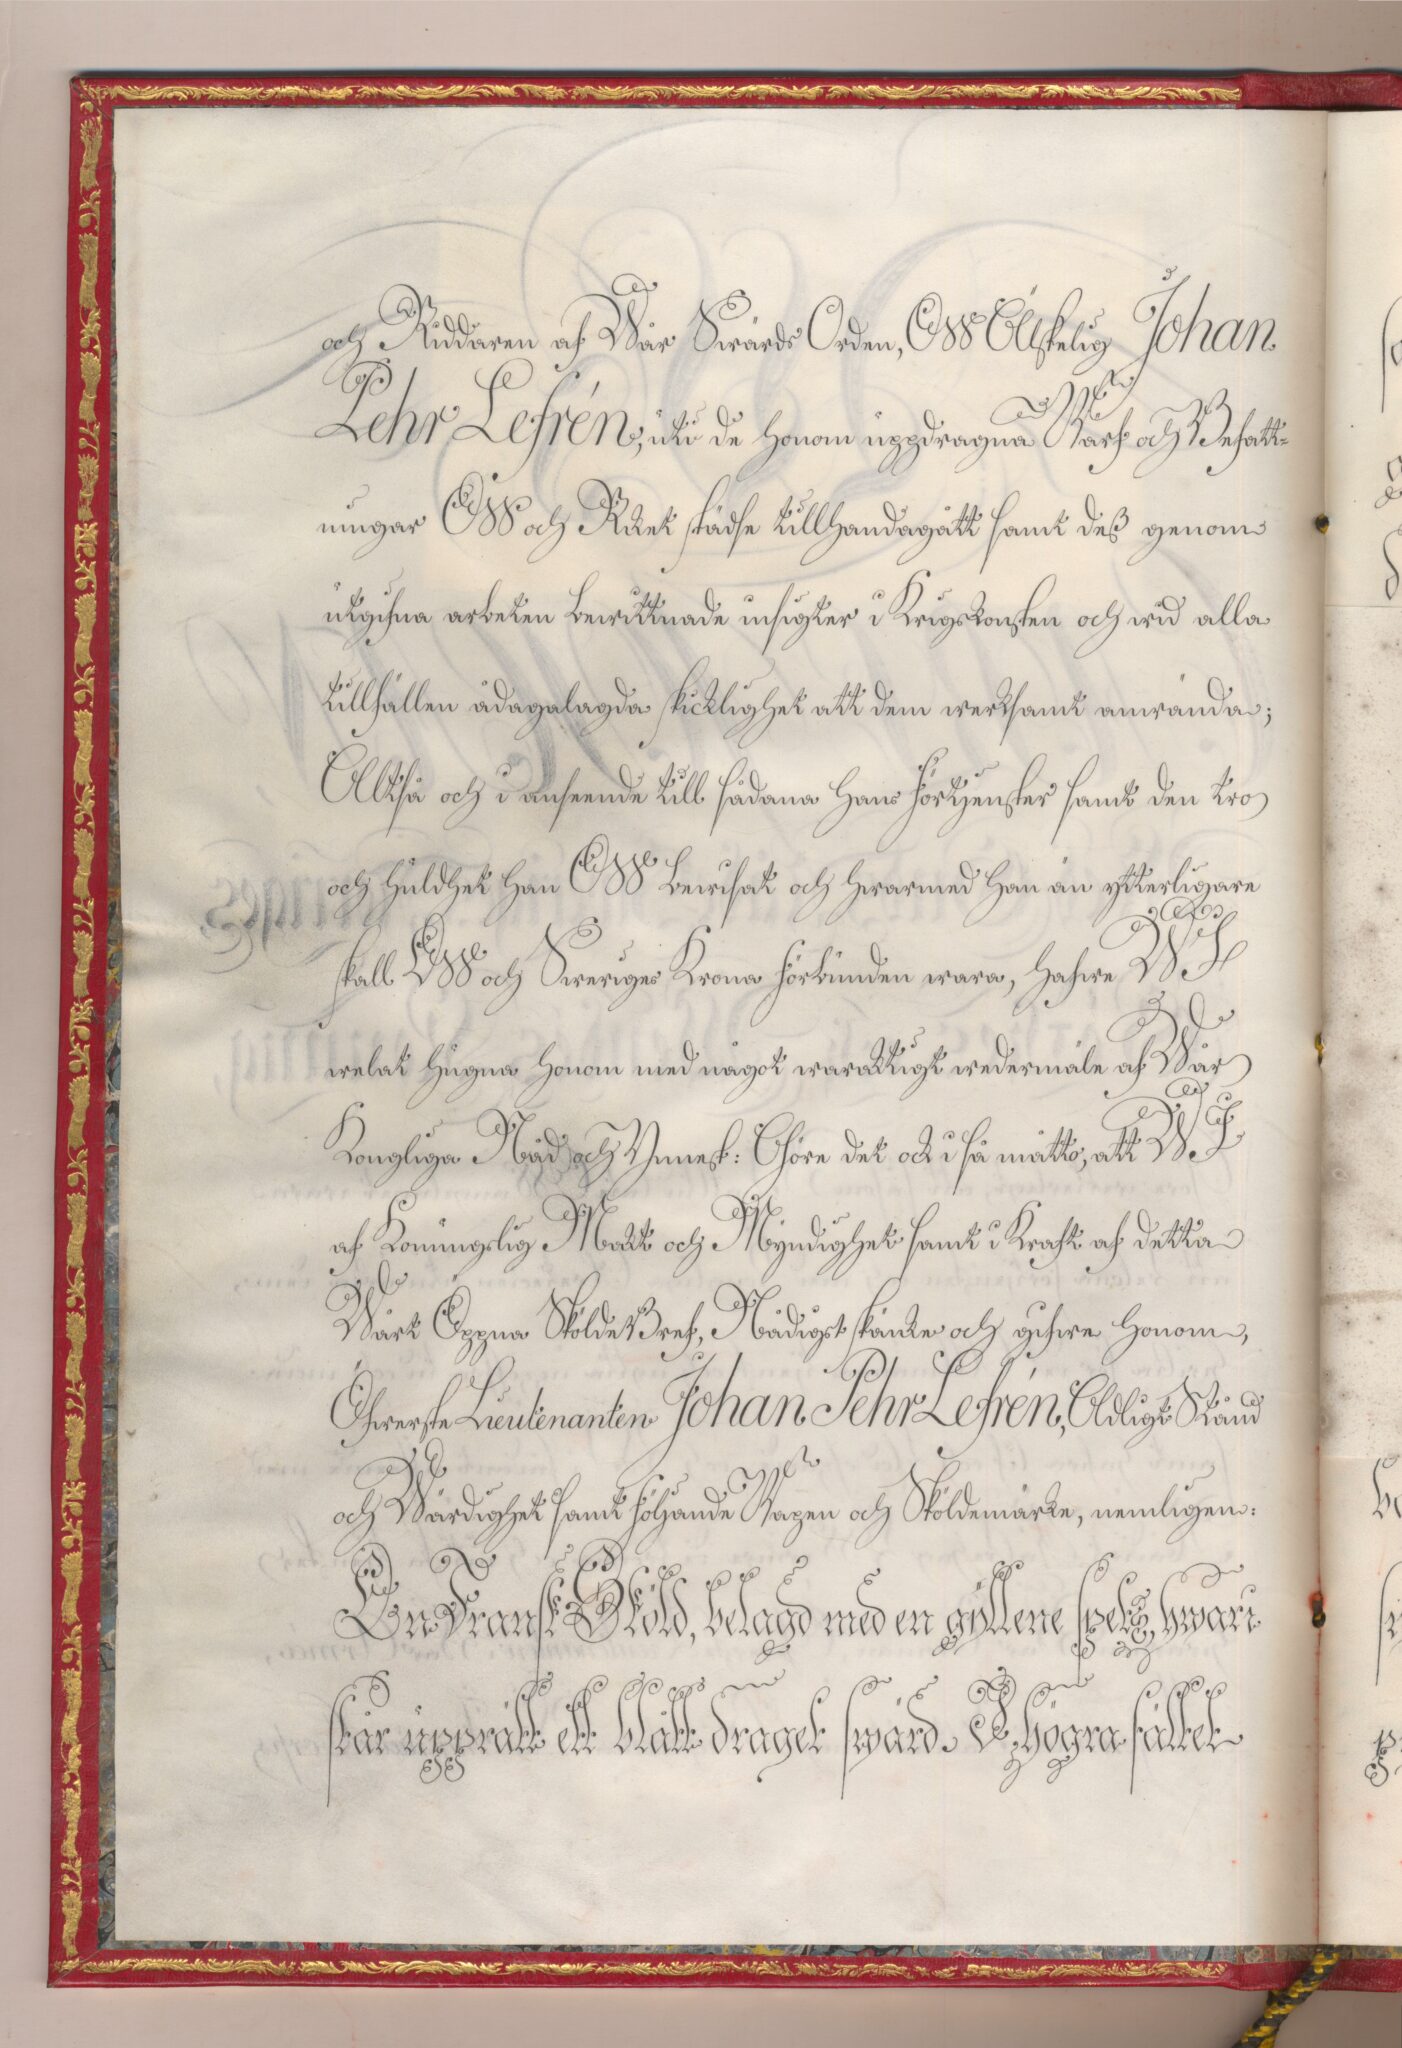 och Riddaren af Wår Swärds Orden, OSS Älskelig Johan
Pehr Lefrén, uti de honom uppdragna Värf och Befatt-
ningar OSS och Riket städse tillhandagått samt deß genom
utgifna arbeten bewittnade insigter i Krigskonsten och wid alla
tillfällen ådagalagda skicklighet att dem werksamt använda;
Altså och i anseende till sådana Hans förtjenster samt den tro
och huldhet Han OSS bewisat och hwarmed Han än ytterligare
skall OSS och Sweriges Krona förbunden wara, hafwe WI
welat hugna Honom med något waraktigt wedermäle af Wår
Kongliga Nåd och Ynnest: Göre det ock i så måtto, att WI
af Konungslig Makt och Myndighet samt i Kraft af detta
Wårt Öppna SköldeBref, Nådigst skänke och gifwe Honom,
Öfwerste Lieutenanten Johan Pehr Lefrén, Adligt Stånd
och Wärdighet samt följande Vapen och Sköldemärke, nemligen:
En Fransk Sköld, belagd med en gyllene spets, hwari
står upprätt ett blått draget swärd. I högra fältet